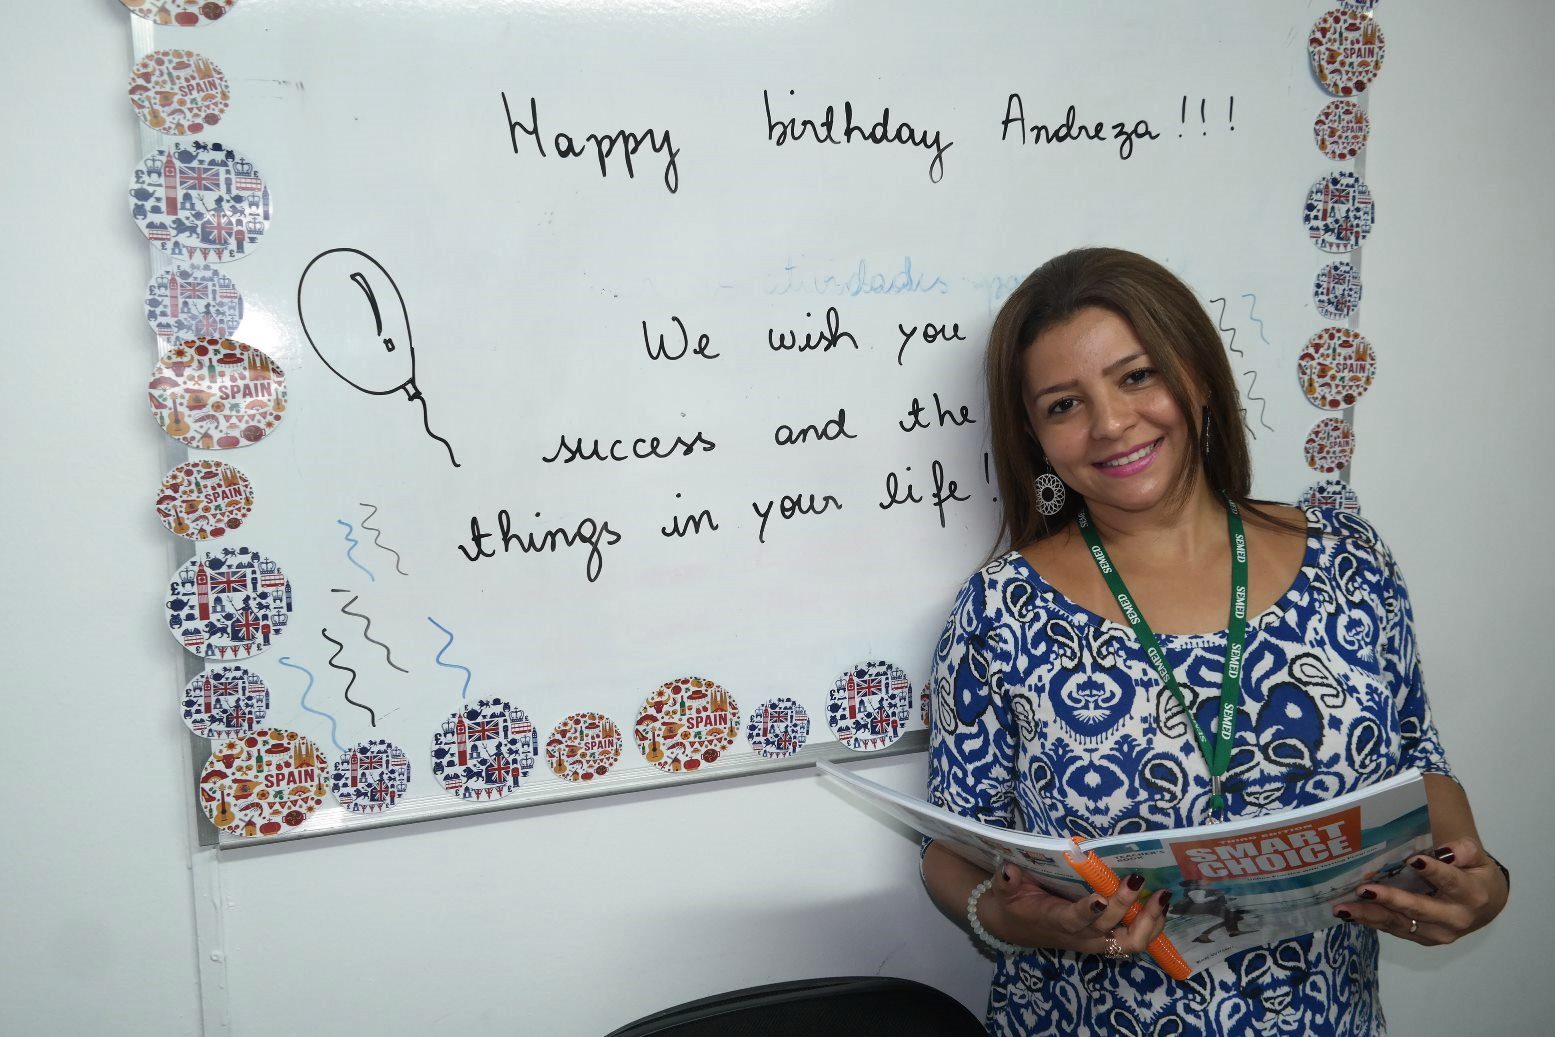 Happy birthday Andreza!!!
We wish you
success and the
things in your life!
SPAIN
SPAIN
SPAIN
SPAIN
SPAIN
SPAIN
SPAIN
SPAIN
SPAIN
SPAIN
SEMED
SEMED
SEMED
SEMED
SEMED
SEMED
THIRD EDITION
SMART
CHOICE
1
TEACHER'S
BOOK